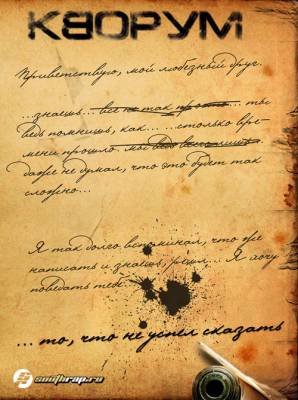 КВОРУМ
Приветствую, мой любезный друг.
...знаешь... все не так просто... ты
ведь помнишь, как... ...столько вре-
мени прошло. мы
даже не думал, что это будет так
сложно...
Я так долго вспоминал, что же
написать и знаешь, решил... Я хочу
поведать тебе
... то, что не успел сказать
southrap.ru